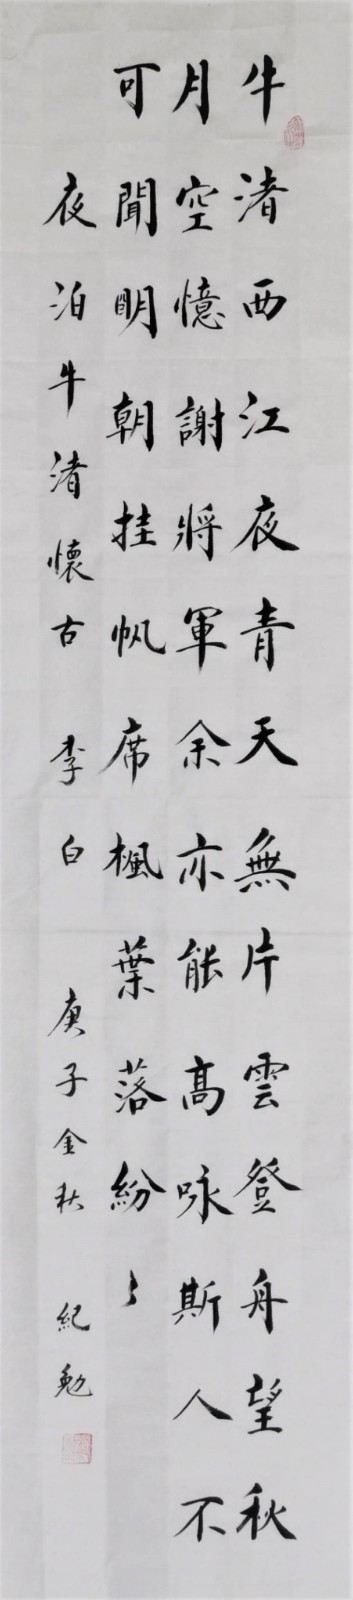 牛渚西江夜青天無片雲登舟望秋
月空憶謝將軍余亦能高咏斯人不
可聞明朝挂帆席楓葉落紛〻
夜泊牛渚懷古 李白 庚子金秋 紀勉